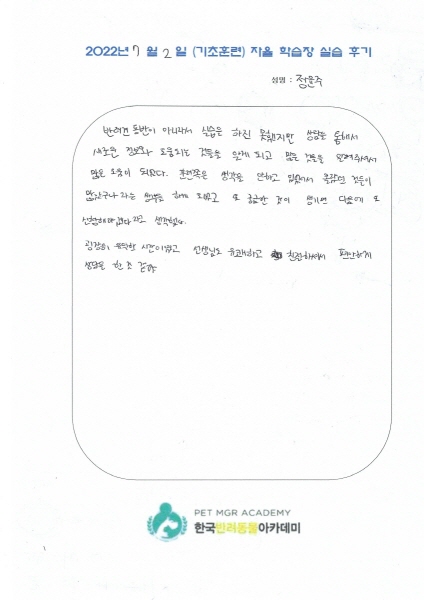 2022년 7 월 2 일 (기초훈련) 자율 학습장 실습 후기
성명 : 정윤주
반려견 동반이 아니라서 실습은 하진 못했지만 상담을 통해서
새로운 정보와 도움되는 것들을 알게 되고 많은 것들을 알려주셔서
많은 도움이 되었다. 훈련쪽은 생각을 안하고 있었어서 몰랐던 것들이
많았구나 라는 생각도 하게 되었고 또 궁금한 것이 생기면 다음에 또
신청해야겠다 라고 생각했다.
굉장히 유익한 시간이었고 선생님도 유쾌하고 친절하셔서 편안하게
상담을 한 것 같다
PET MGR ACADEMY
한국반려동물아카데미